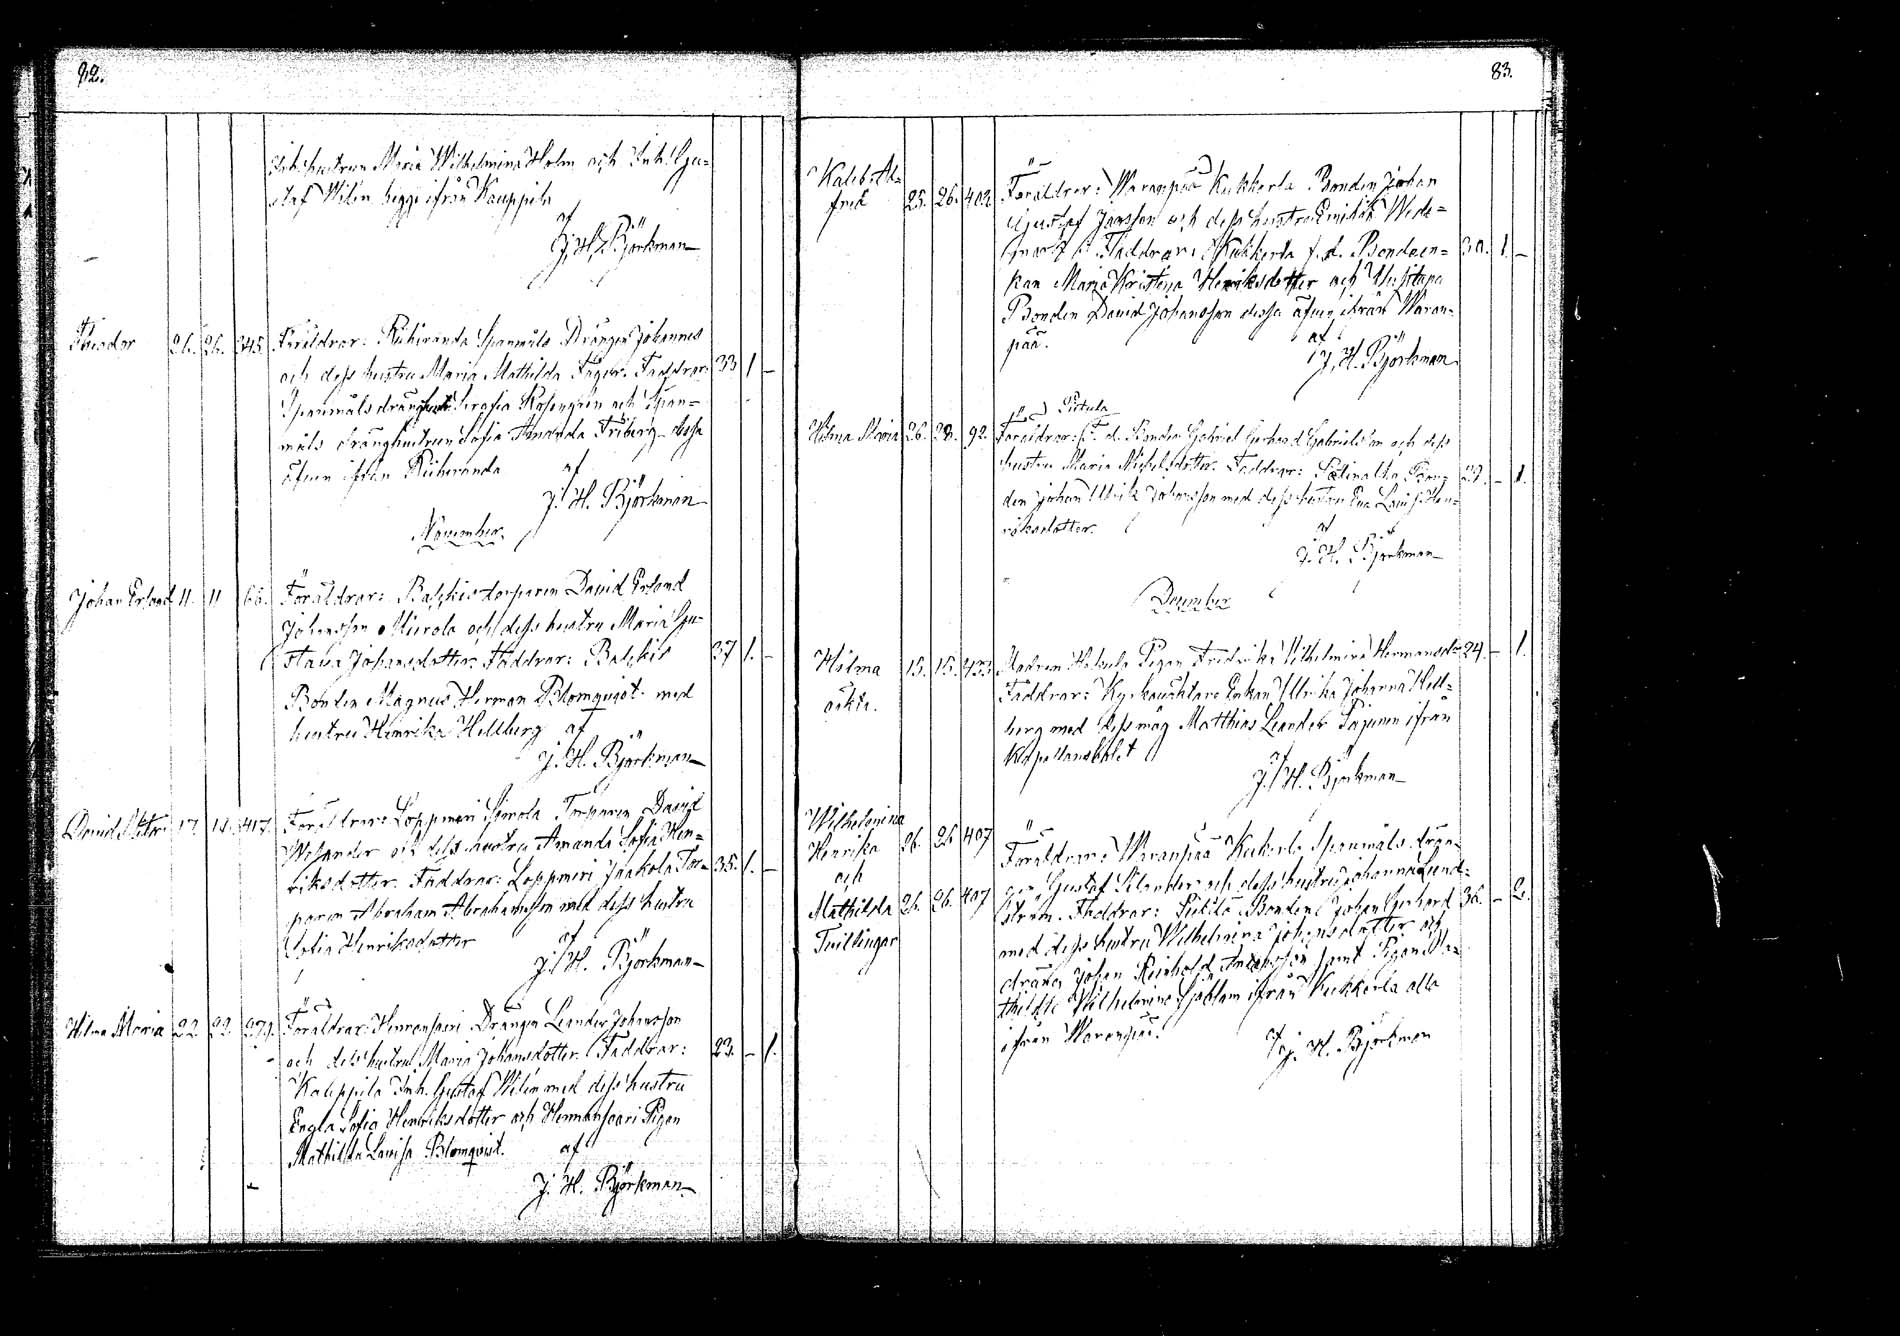 82.
Inh. hustrun Maria Wilhelmina Holm och Inh. Gu=
staf Wilén begge ifrån Kauppila
af
J. H. Björkman
Theodor 26. 26. 345. Föräldrar: Riihiranda Spanmåls Drängen Johannes
och dess hustru Maria Mathilda Fäger. Faddrar: 33 1 –
Spanmåls Serafia Rosengrén och Span=
måls dränghustrun Sofia Amanda Friberg dessa
äfven ifrån Riihiranda
af
J. H. Björkman
November.
Johan Erland 11. 11 66. Föräldrar: Balkis torparen David Erland
Johansson Mierola och dess hustru Maria Gu=
stava Johansdotter. Faddrar: Balkis 37 1. –
Bonden Magnus Herman Blomquist med
hustru Henrika Hellberg af
J. H. Björkman
David 17. 417. Föräldrar: Loppmeri Torparen David
och dess hustru Amanda Sofia Hen=
riksdotter. Faddrar: Loppmeri Jaakola Tor= 35. 1. –
paren Abraham Abrahamsson med dess hustru
Sofia Henriksdotter
af
J. H. Björkman
Hilma Maria 22. 22. 279. Föräldrar: Drängen Leander Johansson
och dess hustru Maria Johansdotter. Faddrar: 23. – 1.
Kauppila Inh. Gustaf Wilén med dess hustru
Engla Sofia Henriksdotter och Pigan
Mathilda Lovisa Blomqvist. af
J. H. Björkman
83.
Kaleb Al=
fred 25. 26. 402. Föräldrar: Waranpää Kukkerla Bonden Johan
Gustaf Jansson och dess hustru Emilia Wide=
Faddrar: Kukkerla f.d. Bondeen= 30. 1. –
kan Maria Kristina Henriksdotter och Uusitupa
Bonden David Johansson dessa äfven ifrån Waran=
pää.
af
J. H. Björkman
Hilma Maria 26. 28. 92. Föräldrar: f. d. Bonden Gabriel Gerhard Gabrielsson och dess
hustru Maria Michelsdotter. Faddrar: Bon= 29. – 1.
den Johan Ulrik Johansson med dess hustru Eva Lovisa Hen=
riksdotter.
af
J. H. Björkman
December
Hilma 15. 15. 433 Modren Hakula Pigan Fredrika Wilhelmina Hermansdr 24. – 1.
oäkta. Faddrar: Kyrkoväktare Enkan Ulrika Johanna Hell=
berg med dess måg Matthias Leander Pajunen ifrån
Kapellansbolet
af
J. H. Björkman
Wilhelmina
Henrika 26. 26 407
och
Mathilda 26. 26. 407
Tvillingar
Föräldrar: Waranpää Kukerla Spanmåls drän=
gen Gustaf Silander och dess hustru Johanna Lund=
ström. Faddrar: Bonden Johan Gerhard 36. – 2.
med dess hustru Wilhelmina Johansdotter och
drängen Johan Reinhold Andersson samt Pigan Ma=
thilda Wilhelmina Sjöblom ifrån Kukkerla alla
ifrån Waranpää.
af J. H. Björkman